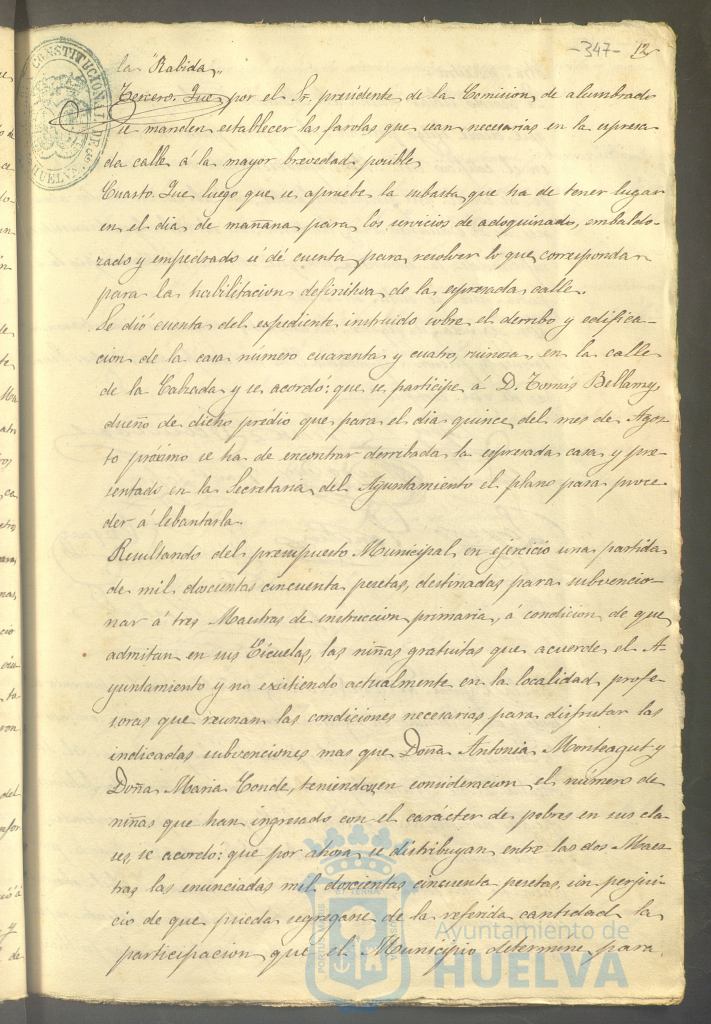 -347- 12
la "Rabida"
Tercero. Que por el Sr. presidente de la Comision de alumbrado
se manden establecer las farolas que sean necesarias en la espresa-
da calle á la mayor brevedad posible
Cuarto. Que luego que se apruebe la subasta que ha de tener lugar
en el dia de mañana para los servicios de adoquinado, embaldo-
zado y empedrado se dé cuenta para resolver lo que corresponda
para la habilitacion definitiva de la espresada calle.
Se dió cuenta del espediente instruido sobre el derribo y edifica-
cion de la casa número cuarenta y cuatro, ruinosa, en la calle
de la Calzada y se acordó: que se participe á D. Tomás Bellamy,
dueño de dicho prédio que para el dia quince del mes de Agos-
to próximo se ha de encontrar derribada la espresada casa y pre-
sentado en la Secretaria del Ayuntamiento el plano para proce-
der á lebantarla.
Resultando del presupuesto Municipal en ejercicio una partida
de mil doscientas cincuenta pesetas, destinadas para subvencio-
nar á tres Maestras de instruccion primaria, á condicion de que
admitan en sus Escuelas, las niñas gratuitas que acuerde el A-
yuntamiento y no existiendo actualmente en la localidad profe-
soras que reunan las condiciones necesarias para disfrutar las
indicadas subvenciones mas que Doña Antonia Monteagut y
Doña Maria Conde, teniendo en consideracion el número de
niñas que han ingresado con el carácter de pobres en sus cla-
ses, se acordó: que por ahora se distribuyan entre las dos Maes-
tras las enunciadas mil doscientas cincuenta pesetas, sin perjui-
cio de que pueda segregarse de la referida cantidad la
participacion que el Municipio determine para
CONSTITUCIONAL DE
HUELVA
Ayuntamiento de
HUELVA